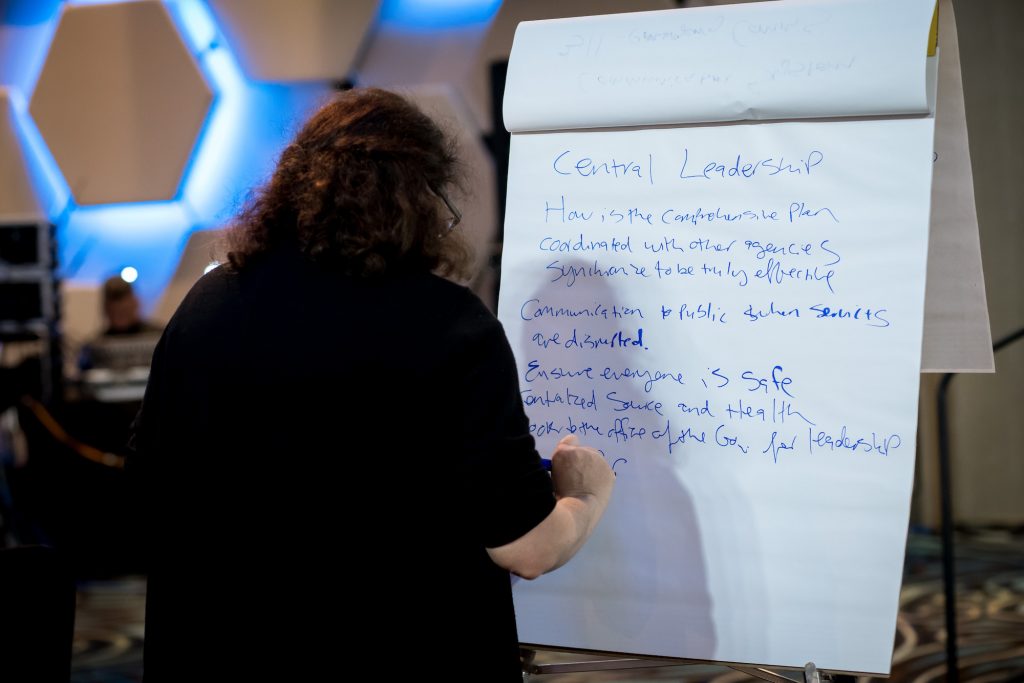 Central Leadership
How is the comprehensive plan
coordinated with other agencies
synchronize to be truly effective
Communication to public when services
are disrupted.
Ensure everyone is safe
Source and Health
the office of the Gov. for leadership